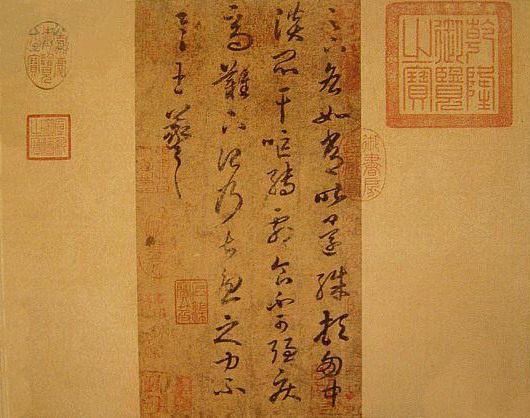 乾隆
御覽
之寶
御書房
足下各如常昨還殊頓匈中
淡悶干嘔轉劇食不可強疾
高難下治乃甚憂之力不
具王羲之
嘉慶
御覽
之寶